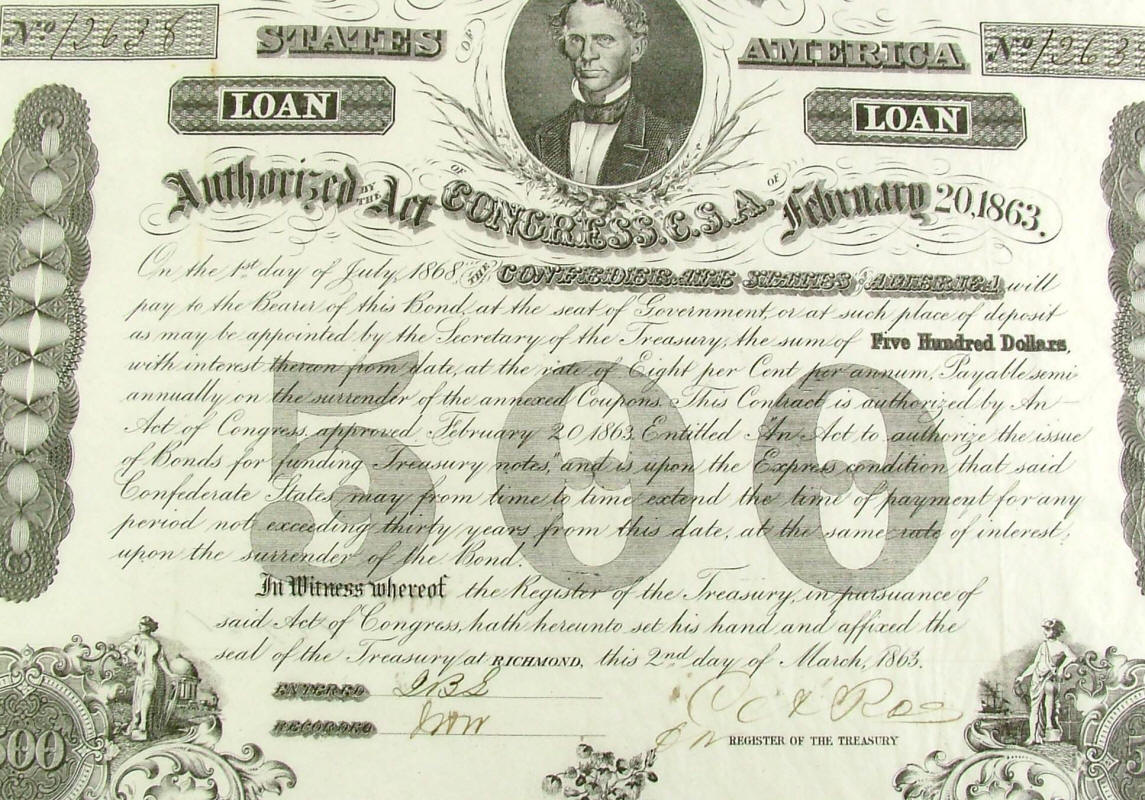 No 12638 STATES OF AMERICA No 1263
LOAN LOAN
Authorized BY THE Act OF CONGRESS. C.S.A. OF February 20, 1863.
On the 1st day of July, 1868, THE CONFEDERATE STATES OF AMERICA will
pay to the Bearer of this Bond, at the seat of Government, or at such place of deposit
as may be appointed by the Secretary of the Treasury, the sum of Five Hundred Dollars,
with interest thereon from date, at the rate of Eight per Cent per annum, Payable semi
annually on the surrender of the annexed Coupons. This Contract is authorized by An
Act of Congress, approved February 20, 1863. Entitled "An Act to authorize the issue
of Bonds for funding Treasury notes," and is upon the Express condition that said
Confederate States may from time to time extend the time of payment for any
period not exceeding thirty years from this date, at the same rate of interest,
upon the surrender of the Bond.
500
In Witness whereof the Register of the Treasury, in pursuance of
said Act of Congress, hath hereunto set his hand and affixed the
seal of the Treasury, at RICHMOND, this 2nd day of March, 1863.
ENTERED
RECORDED
REGISTER OF THE TREASURY
500